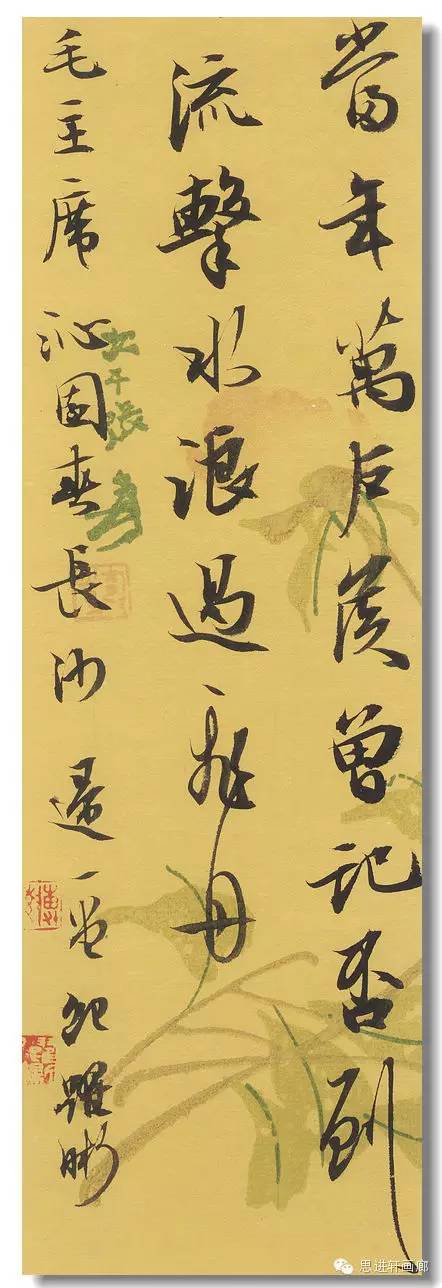 當年萬户侯曾記否到
流擊水浪遏飛舟
毛主席沁園春長沙
大千張爰
思进轩画廊